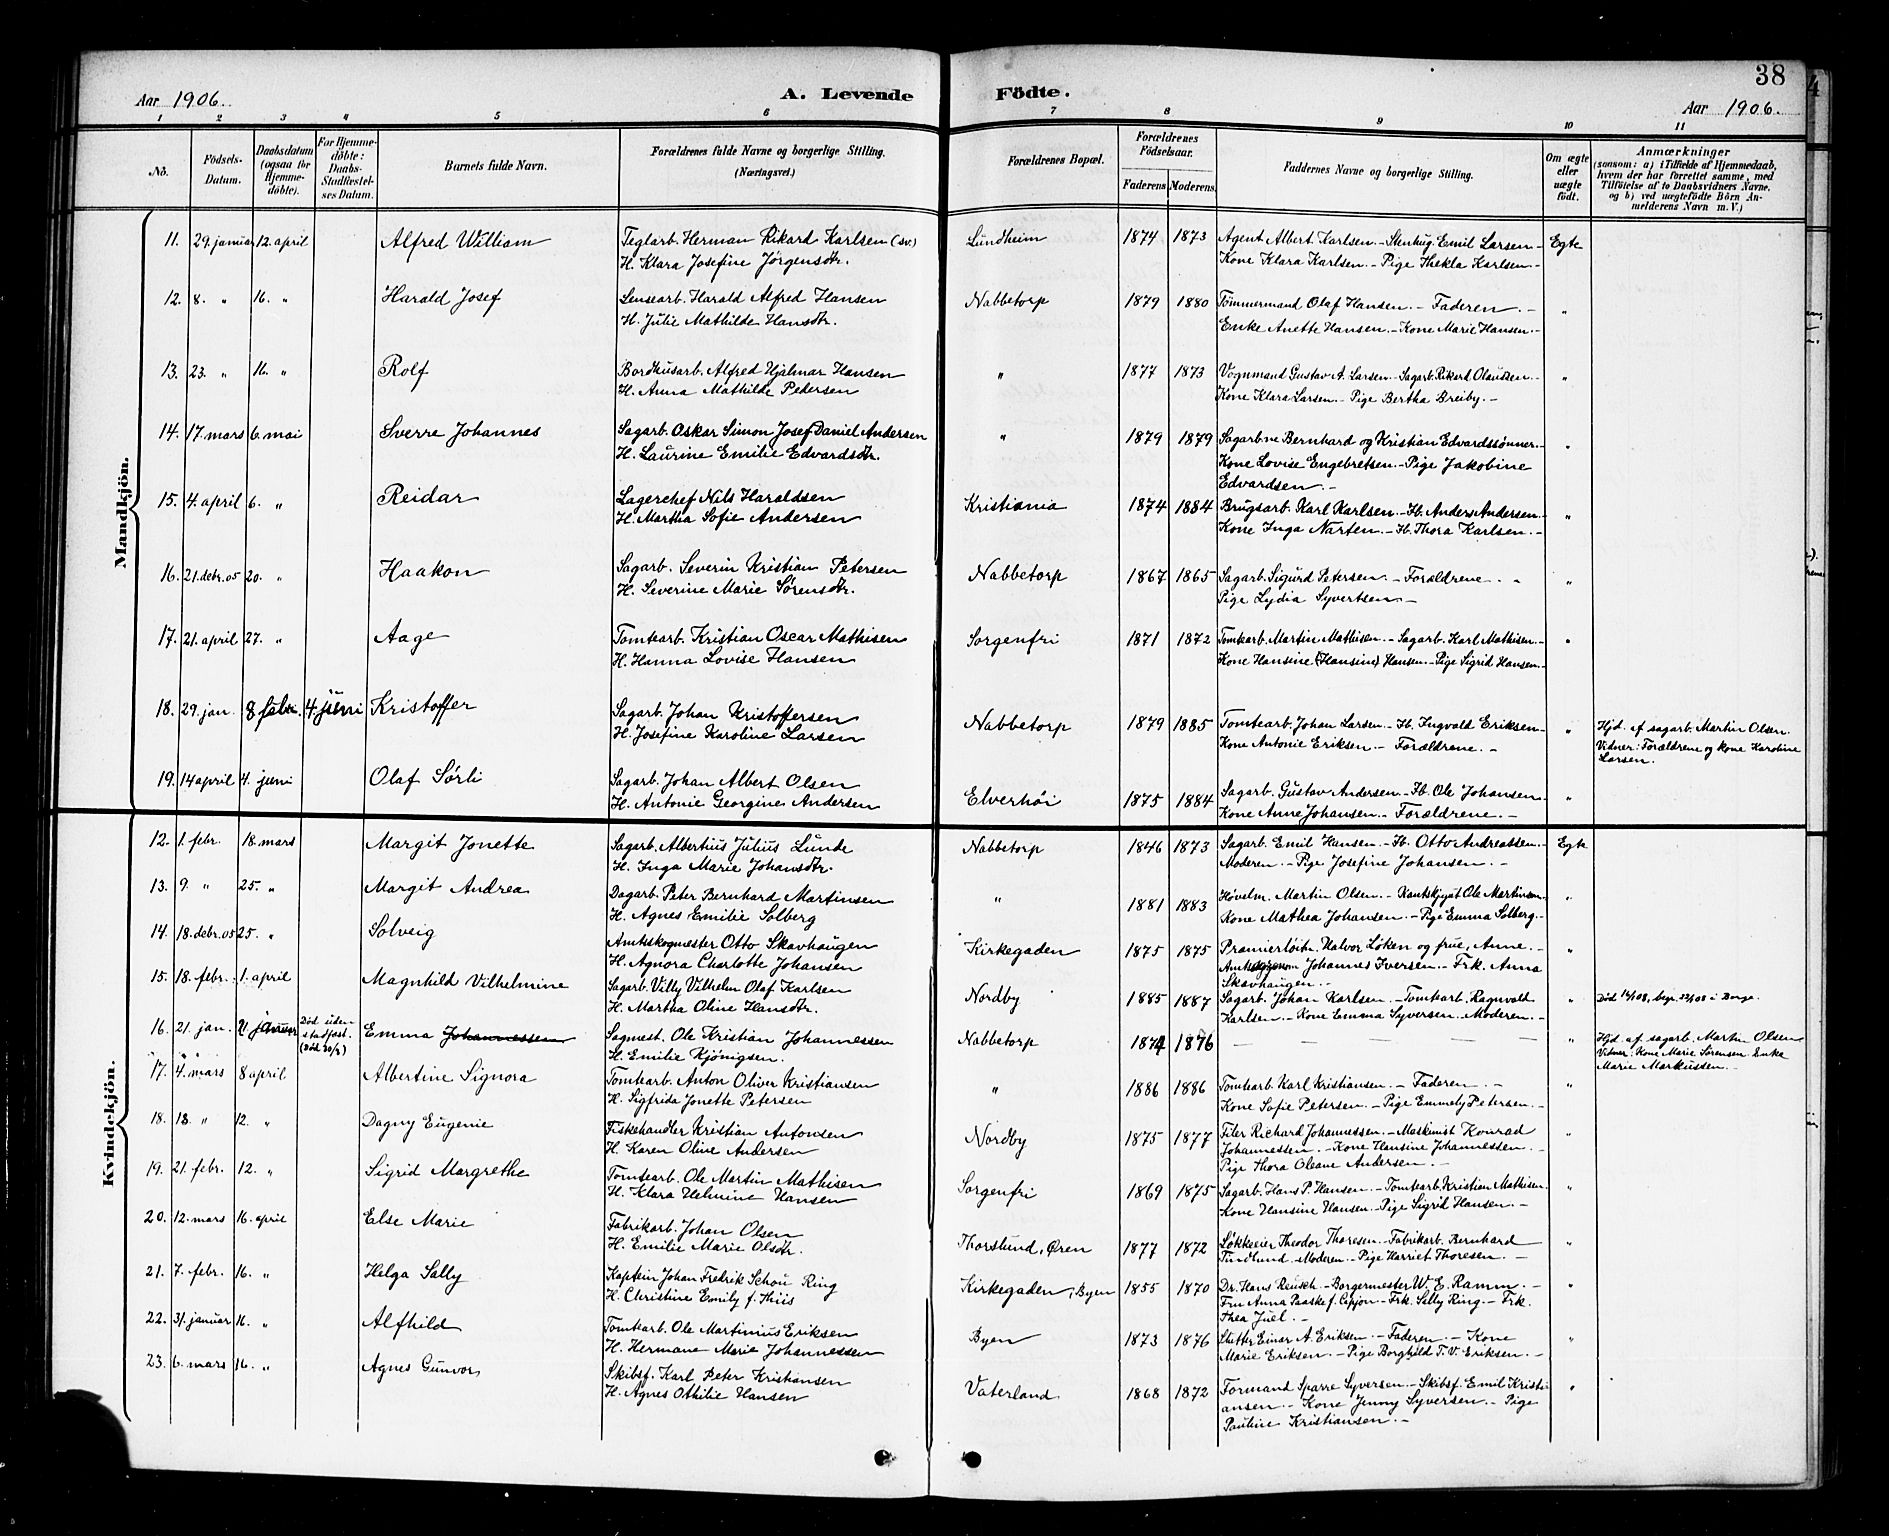 38
Aar 1906.
A. Levende
Födte.
Aar 1906.
1 2 3 4 5 6 7 8 9 10 11
No.
Födsels-Datum.
Daabsdatum (ogsaa for Hjemme-döbte).
For Hjemme-döbte: Daabs-Stadfæstel-ses Datum.
Barnets fulde Navn.
Forældrenes fulde Navne og borgerlige Stilling.
(Næringsvei.)
Forældrenes Bopæl.
Forældrenes Födselsaar.
Faderens Moderens
Faddernes Navne og borgerlige Stilling.
Om ægte eller uægte födt.
Anmærkninger
(saasom: a) i Tilfælde af Hjemmedaab,
hvem der har forrettet samme, med
Tilföielse af to Daabsvidners Navne,
og b) ved uægtefödte Börn An-
melderens Navn m. V.)
Mandkjön.
11. 29. januar 12. april Alfred William Teglarb. Herman Rikard Karlsen (sv.) Lundheim 1874 1873 Agent Albert Karlsen. - Stenhug. Emil Larsen - Egte
H. Klara Josefine Jörgensdtr. Kone Klara Karlsen. - Pige Thekla Karlsen -
12. 8. " 16. " Harald Josef Lensearb. Harald Alfred Hansen Nabbetorp 1879 1880 Tömmermand Olaf Hansen. - Faderen. - "
H. Julie Mathilde Hansdtr. Enke Anette Hansen. - Kone Marie Hansen. -
13. 23. " 16. " Rolf Bordhusarb. Alfred Hjalmar Hansen " 1877 1873 Vognmand Gustav A. Larsen - Sagarb. Rikard Olausen - "
H. Anna Mathilde Petersen Kone Klara Larsen. - Pige Bertha Breiby. -
14. 17. mars 6. mai Sverre Johannes Sagarb. Oskar Simon Josef Daniel Andersen " 1879 1879 Sagarb.ne Bernhard og Kristian Edvardssønner. - "
H. Laurine Emilie Edvardsdtr. Kone Lovise Engebretsen. - Pige Jakobine
Edvardsen. -
15. 4. april 6. " Reidar Lagerchef Nils Haraldsen Kristiania 1874 1884 Brugsarb. Karl Karlsen. - Fb. Anders Andersen. - "
H. Martha Sofie Andersen Kone Inga Narten. - Fb. Thora Karlsen. -
16. 21. debr. 05 20. " Haakon Sagarb. Severin Kristian Petersen Nabbetorp 1867 1865 Sagarb. Sigurd Petersen. - Forældrene. - "
H. Severine Marie Sørensdtr. Pige Lydia Syvertsen -
17. 21. april 27. " Aage Tomtearb. Kristian Oscar Mathisen Sorgenfri 1871 1872 Tomtearb. Martin Mathisen. - Sagarb. Karl Mathisen. - "
H. Hanna Lovise Hansen Kone Hansine (Hansine) Hansen. - Pige Sigrid Hansen. -
18. 29. jan. 8 febr. 4. juni Kristoffer Sagarb. Johan Kristoffersen Nabbetorp 1879 1885 Tomtearb. Johan Larsen - Fb. Ingvald Eriksen - " Hjd. af sagarb. Martin Olsen.
H. Josefine Karoline Larsen Kone Antonie Eriksen - Forældrene. - Vidner: Forældrene og kone Karoline
Larsen.
19. 14 april 4. juni Olaf Sörli Sagarb. Johan Albert Olsen Elverhöi 1875 1884 Sagarb. Gustav Andersen - Fb. Ole Johansen. "
H. Antonie Georgine Andersen Kone Anne Johansen - Forældrene. -
Kvindekjön.
12. 1. febr. 18. mars Margit Jonette Sagarb. Albertius Julius Lunde Nabbetorp 1846 1873 Sagarb. Emil Hansen - Fb. Otto Andreassen. - Egte
H. Inga Marie Johansdtr. Moderen. - Pige Josefine Johansen. -
13. 9. " 25. " Margit Andrea Dagarb. Peter Bernhard Martinsen " 1881 1883 Høvelm. Martin Olsen. - Ole Martinsen "
H. Agnes Emilie Solberg Kone Mathea Johansen. - Pige Emma Solberg. -
14. 18. debr. 05 25. " Solveig Amtsskogmester Otto Skavhaugen Kirkegaden 1875 1875 Premierløitn. Halvor Løken og frue, Anne. - "
H. Agnora Charlotte Johansen Johannes Iversen - Frk. Anna
Skavhaugen. -
15. 18. febr. 1. april Magnhild Vilhelmine Sagarb. Villy Vilhelm Olaf Karlsen Nordby 1885 1887 Sagarb. Johan Karlsen - Tomtearb. Ragnvald " Död 14/1 08, begr. 22/1 08 i Borge.
H. Martha Oline Hansdtr. Karlsen - Kone Emma Syversen. Moderen. -
16. 21. jan. 21 januar Död uden stadfæst. Emma Johannessen Sagmest. Ole Kristian Johannessen Nabbetorp 1874 1876 - - - - - - " Hjd. af sagarb. Martin Olsen
H. Emilie Kjönigsen. Vidner: Kone Marie Sørensen. Enke
Marie Markussen. -
17. 4. mars 8 april Albertine Signora Tomtearb. Anton Oliver Kristiansen " 1886 1886 Tomtearb. Karl Kristiansen. - Faderen. - "
H. Sigfrida Jonette Petersen Kone Sofie Petersen. - Pige Emmely Petersen. -
18. 13. " 12. " Dagny Eugenie Fiskehandler Kristian Antonsen Nordby 1875 1877 Filer Richard Johannessen. - Maskinist Konrad "
H. Karen Oline Andersen Johannessen. - Kone Hansine Johannessen. -
Pige Thora Oleane Andersen. -
19. 21. febr. 12. " Sigrid Margrethe Tomtearb. Ole Martin Mathisen Sorgenfri 1869 1875 Sagarb. Hans P. Hansen. - Tomtearb. Kristian Mathisen. "
H. Klara Helmine Hansen Kone Hansine Hansen. - Pige Sigrid Hansen. -
20. 12. mars 16. april Else Marie Fabrikarb. Johan Olsen Thorslund, Øren 1877 1872 Løkkeeier Theodor Thoresen. - Fabrikarb. Bernhard "
H. Emilie Marie Olsdtr. Tindlund. Moderen. - Pige Harriet Thoresen. -
21. 7. febr. 16. " Helga Sally Kaptein Johan Fredrik Schou Ring Kirkegaden, Byen 1855 1870 Dr. Hans Reusch. - Borgermester W. E. Ramm. - "
H. Christine Emily f. Thiis Fru Anna Paaske f. - Frk. Silly Ring - Frk.
Thea Juel. -
22. 31. januar 16. " Alfhild Tomtearb. Ole Martinius Eriksen Byen 1873 1876 Einar A. Eriksen. - Faderen. - Kone "
H. Hermane Marie Johannessen Marie Eriksen. - Pige Borghild T. V. Eriksen. -
23. 6. mars 16. " Agnes Gunvor Skibsf. Karl Peter Kristiansen Vaterland 1868 1872 Formand Sparre Syversen - Skibsf. Emil Kristi- "
H. Agnes Othilie Hansen ansen - Kone Jenny Syversen - Pige
Pauline Kristiansen. -